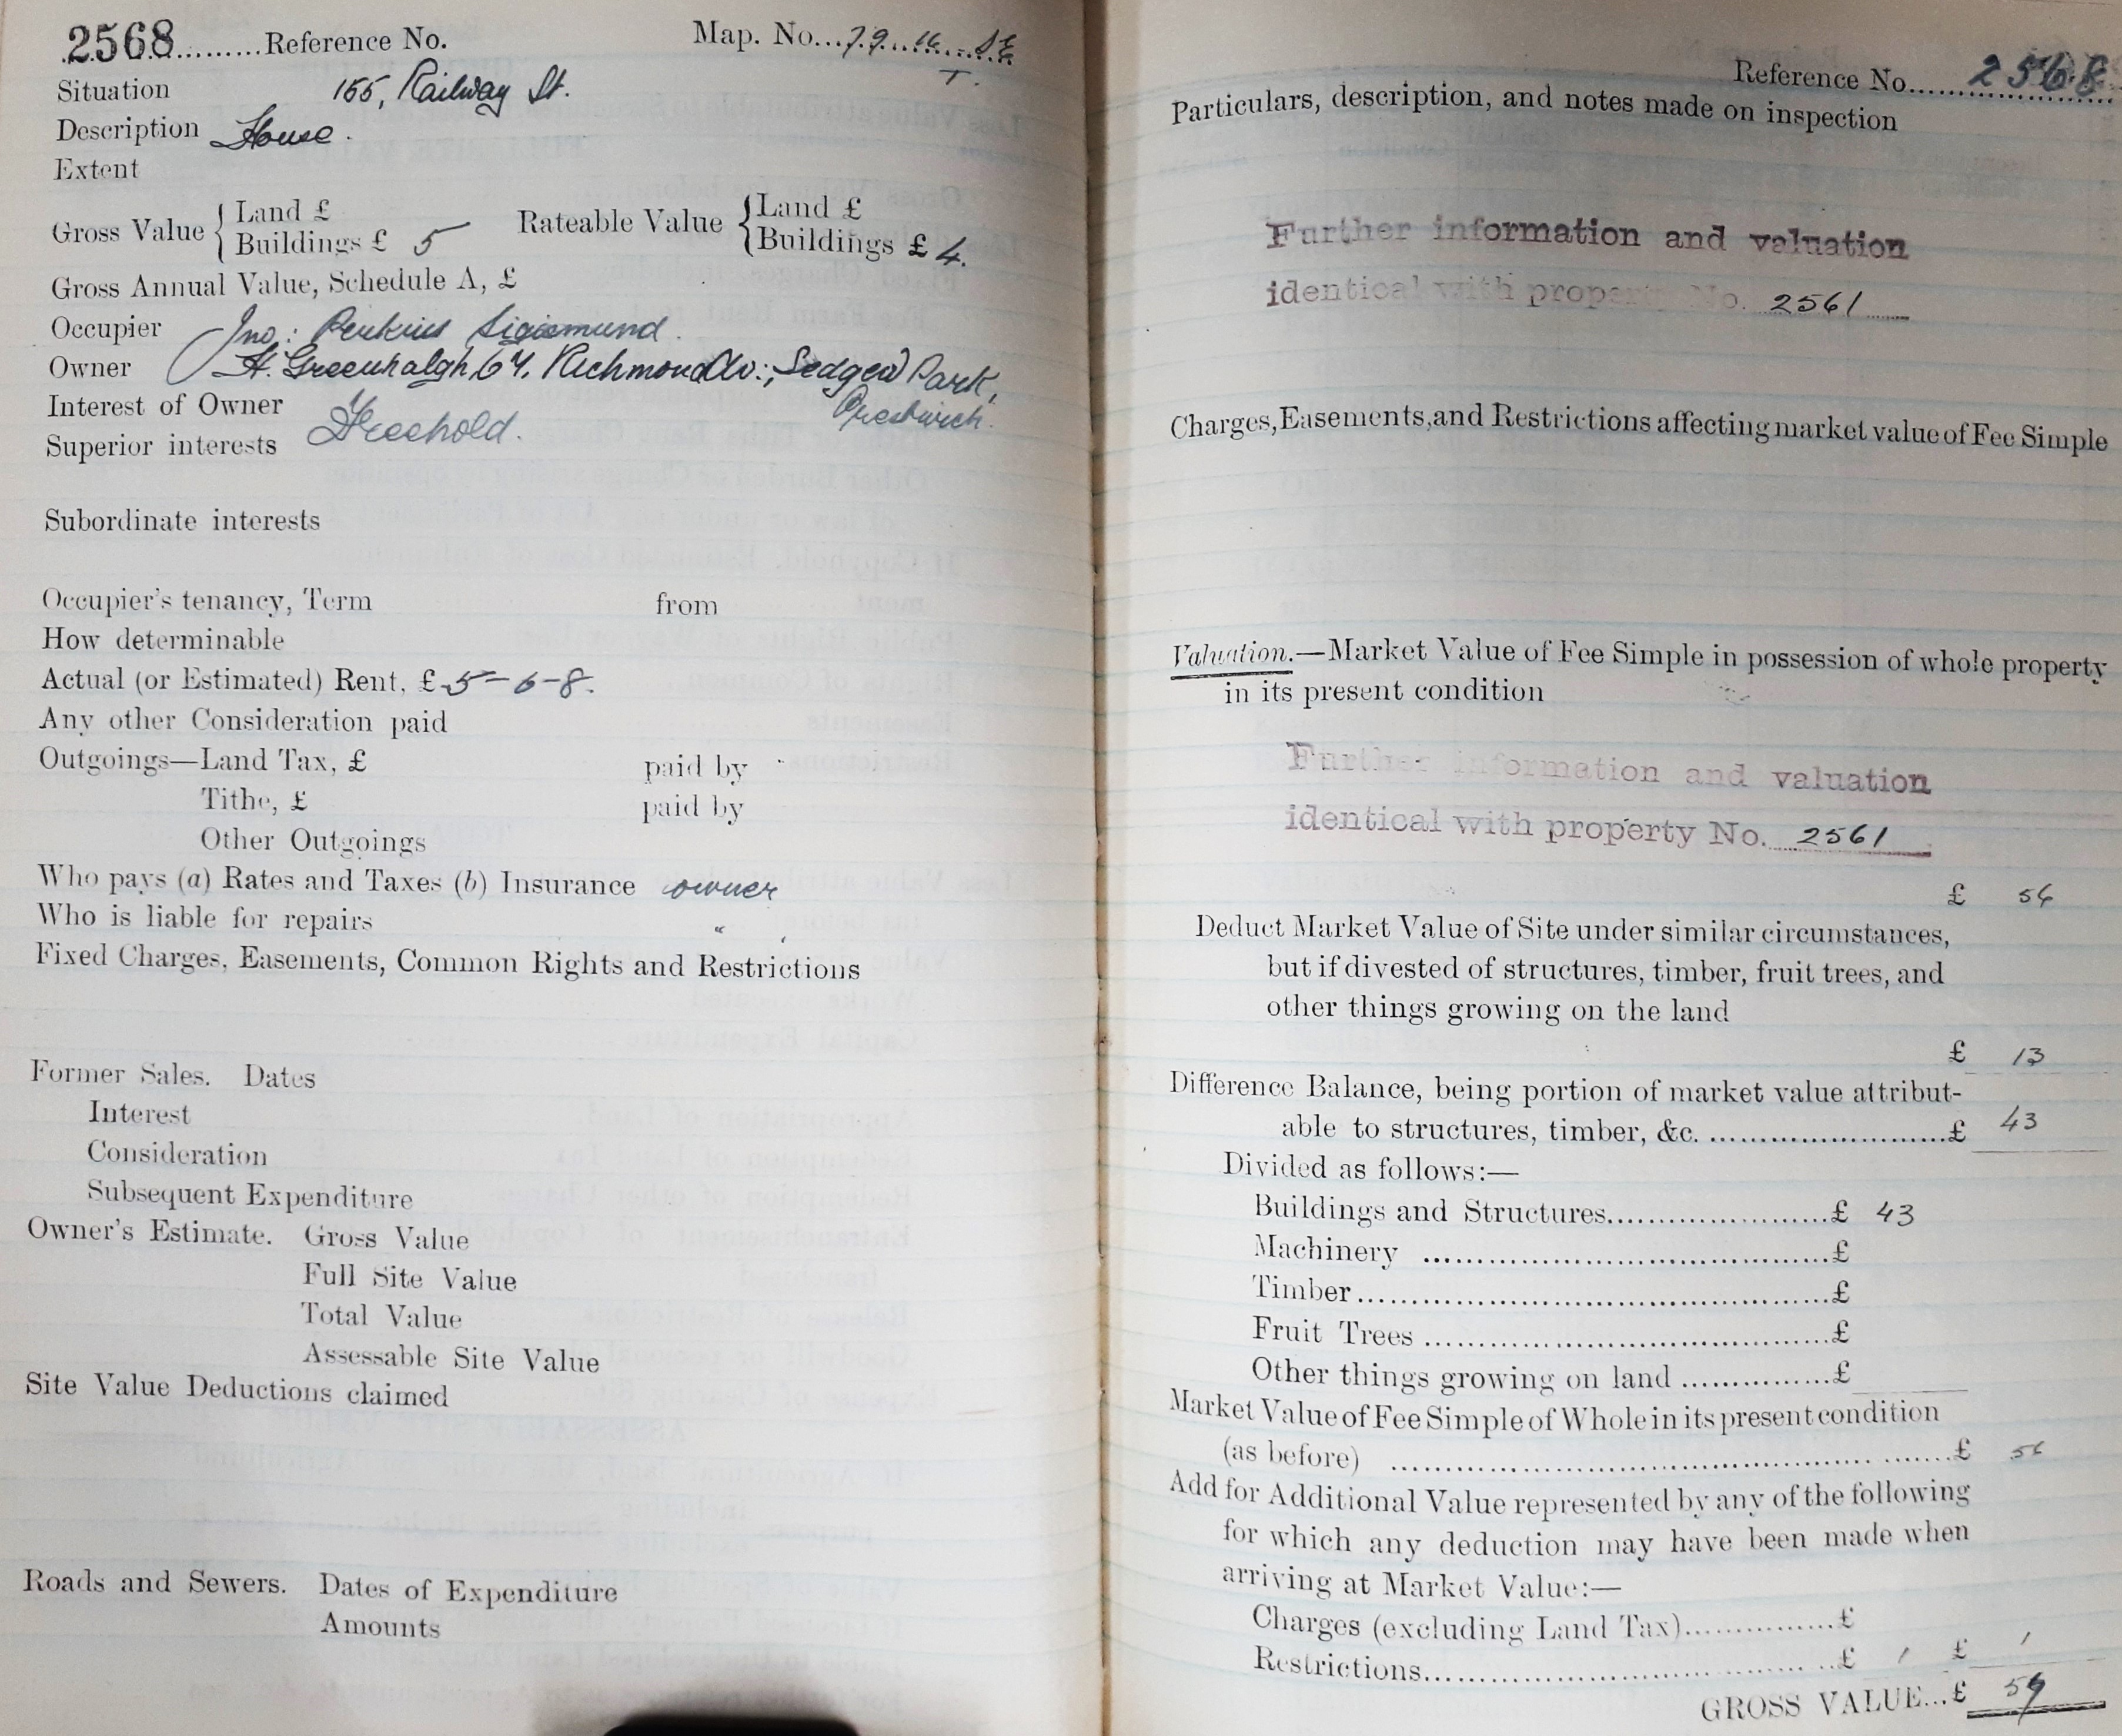 2568.........Reference No. Map. No...79. 16. SE
T.
Situation 155, Railway St.
Description House.
Extent
Gross Value { Land £
Buildings £ 5
Rateable Value { Land £
Buildings £ 4.
Gross Annual Value, Schedule A, £
Occupier Jno: Perkins Sigismund.
Owner H. Greenhalgh, 64, Richmond Av:, Sedgew Park,
Prestwich.
Interest of Owner Freehold.
Superior interests
Subordinate interests
Occupier's tenancy, Term from
How determinable
Actual (or Estimated) Rent, £ 5-6-8.
Any other Consideration paid
Outgoings—Land Tax, £ paid by
Tithe, £ paid by
Other Outgoings
Who pays (a) Rates and Taxes (b) Insurance owner
Who is liable for repairs "
Fixed Charges, Easements, Common Rights and Restrictions
Former Sales. Dates
Interest
Consideration
Subsequent Expenditure
Owner's Estimate. Gross Value
Full Site Value
Total Value
Assessable Site Value
Site Value Deductions claimed
Roads and Sewers. Dates of Expenditure
Amounts
Reference No. 2568
Particulars, description, and notes made on inspection
Further information and valuation
identical with property No. 2561
Charges, Easements, and Restrictions affecting market value of Fee Simple
Valuation.—Market Value of Fee Simple in possession of whole property
in its present condition
Further information and valuation
identical with property No. 2561
£ 56
Deduct Market Value of Site under similar circumstances,
but if divested of structures, timber, fruit trees, and
other things growing on the land
£ 13
Difference Balance, being portion of market value attribut-
able to structures, timber, &c. ........................£ 43
Divided as follows:—
Buildings and Structures......................£ 43
Machinery ........................................£
Timber..............................................£
Fruit Trees ........................................£
Other things growing on land ...............£
Market Value of Fee Simple of Whole in its present condition
(as before) ........................................£ 56
Add for Additional Value represented by any of the following
for which any deduction may have been made when
arriving at Market Value:—
Charges (excluding Land Tax)...............£
Restrictions........................................£ 1 £ 1
GROSS VALUE...£ 57